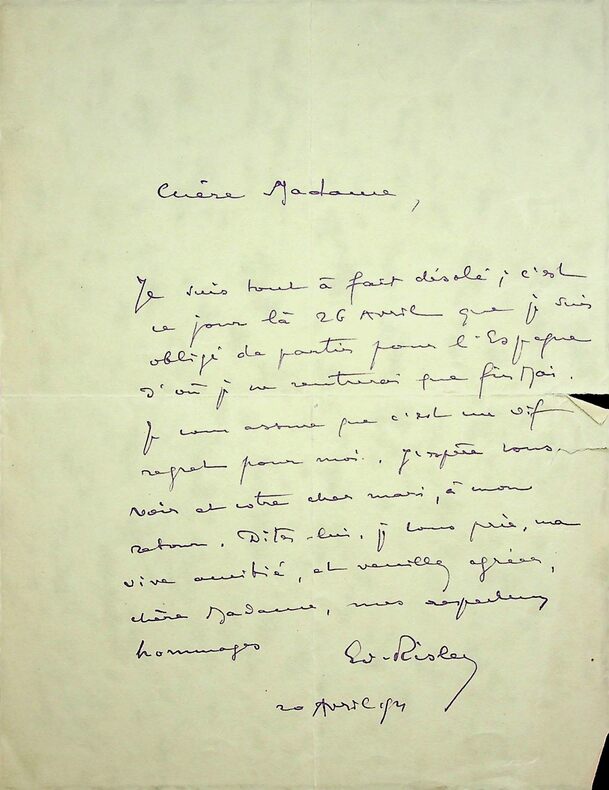 Chère Madame,
Je suis tout à fait désolé ; c'est
ce jour là 26 Avril que je suis
obligé de partir pour l'Espagne
d'où je ne rentrerai que fin Mai.
Je vous assure que c'est un vif
regret pour moi. J'espère vous
voir et votre cher mari, à mon
retour. Dites-lui, je vous prie, ma
vive amitié, et veuillez agréer,
chère Madame, mes respectueux
hommages
Ed. Risler
20 Avril